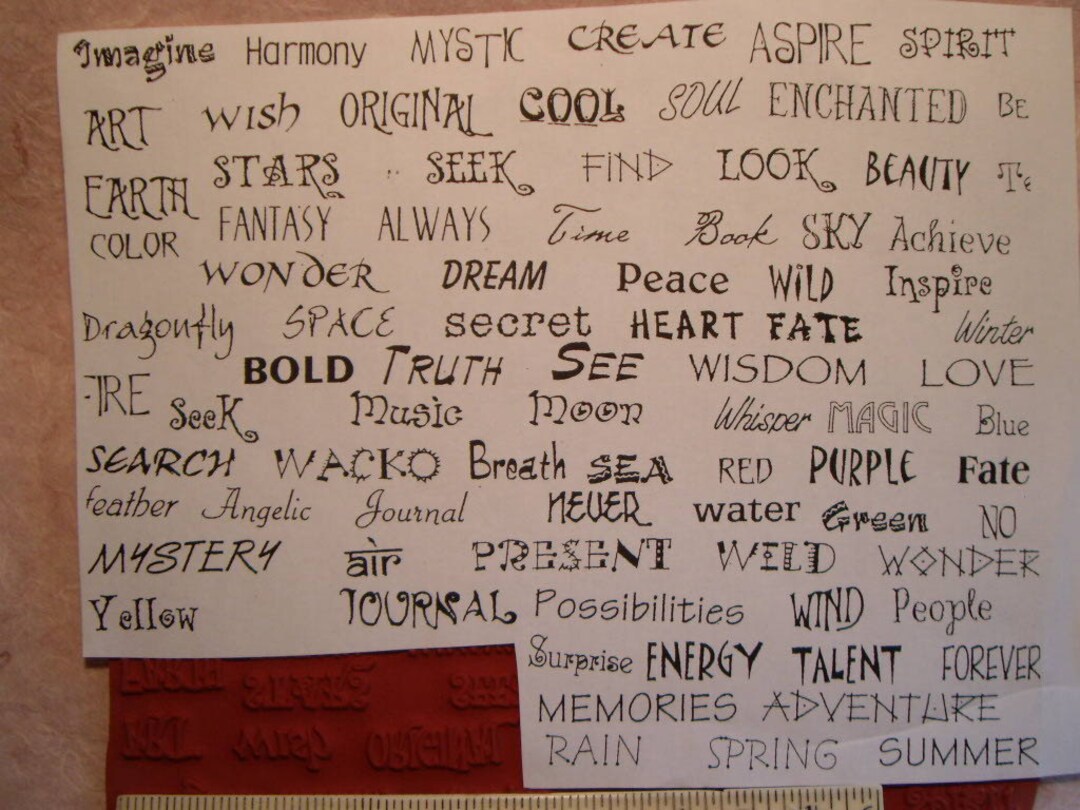 Imagine Harmony MYSTIC CREATE ASPIRE SPIRIT
ART wish ORIGINAL COOL SOUL ENCHANTED BE
EARTH STARS SEEK FIND LOOK BEAUTY
COLOR FANTASY ALWAYS Time Book SKY Achieve
WONDER DREAM Peace WILD Inspire
Dragonfly SPACE secret HEART FATE Winter
BOLD TRUTH SEE WISDOM LOVE
SeeK Music Moon Whisper MAGIC Blue
SEARCH WACKO Breath SEA RED PURPLE Fate
feather Angelic Journal NEVER water Green NO
MYSTERY air PRESENT WILD WONDER
Yellow JOURNAL Possibilities WIND People
Surprise ENERGY TALENT FOREVER
MEMORIES ADVENTURE
RAIN SPRING SUMMER